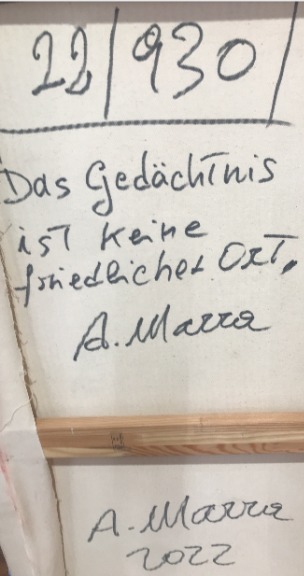 22/930/
Das Gedächtnis
ist keine
friedlicher Ort.
A. Marra
A. Marra
2022